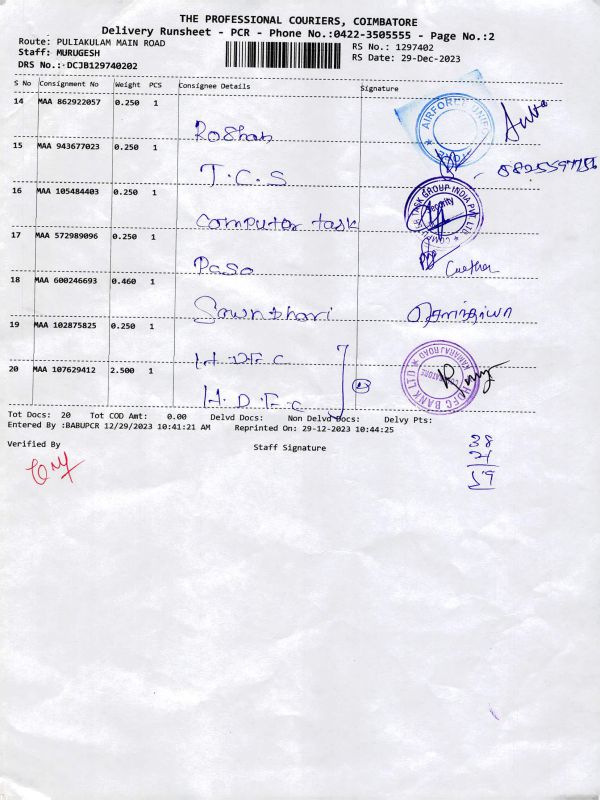 THE PROFESSIONAL COURIERS, COIMBATORE
Delivery Runsheet - PCR - Phone No.:0422-3505555 - Page No.:2
Route: PULIAKULAM MAIN ROAD
Staff: MURUGESH
DRS No.: DCJB129740202
RS No.: 1297402
RS Date: 29-Dec-2023
S No Consignment No Weight PCS Consignee Details Signature
14 MAA 862922057 0.250 1
Roshan
AIRFORCE
15 MAA 943677023 0.250 1
T.C.S
16 MAA 105484403 0.250 1
Computer task
TASK GROUP INDIA PVT. LTD.
Security
17 MAA 572989096 0.250 1
18 MAA 600246693 0.460 1
19 MAA 102875825 0.250 1
H.D.F.C
20 MAA 107629412 2.500 1
H.D.F.C
HDFC BANK LTD
KAMARAJ ROAD
COIMBATORE
Tot Docs: 20 Tot COD Amt: 0.00 Delvd Docs: Non Delvd Docs: Delvy Pts:
Entered By :BABUPCR 12/29/2023 10:41:21 AM Reprinted On: 29-12-2023 10:44:25
Verified By Staff Signature
38
21
59